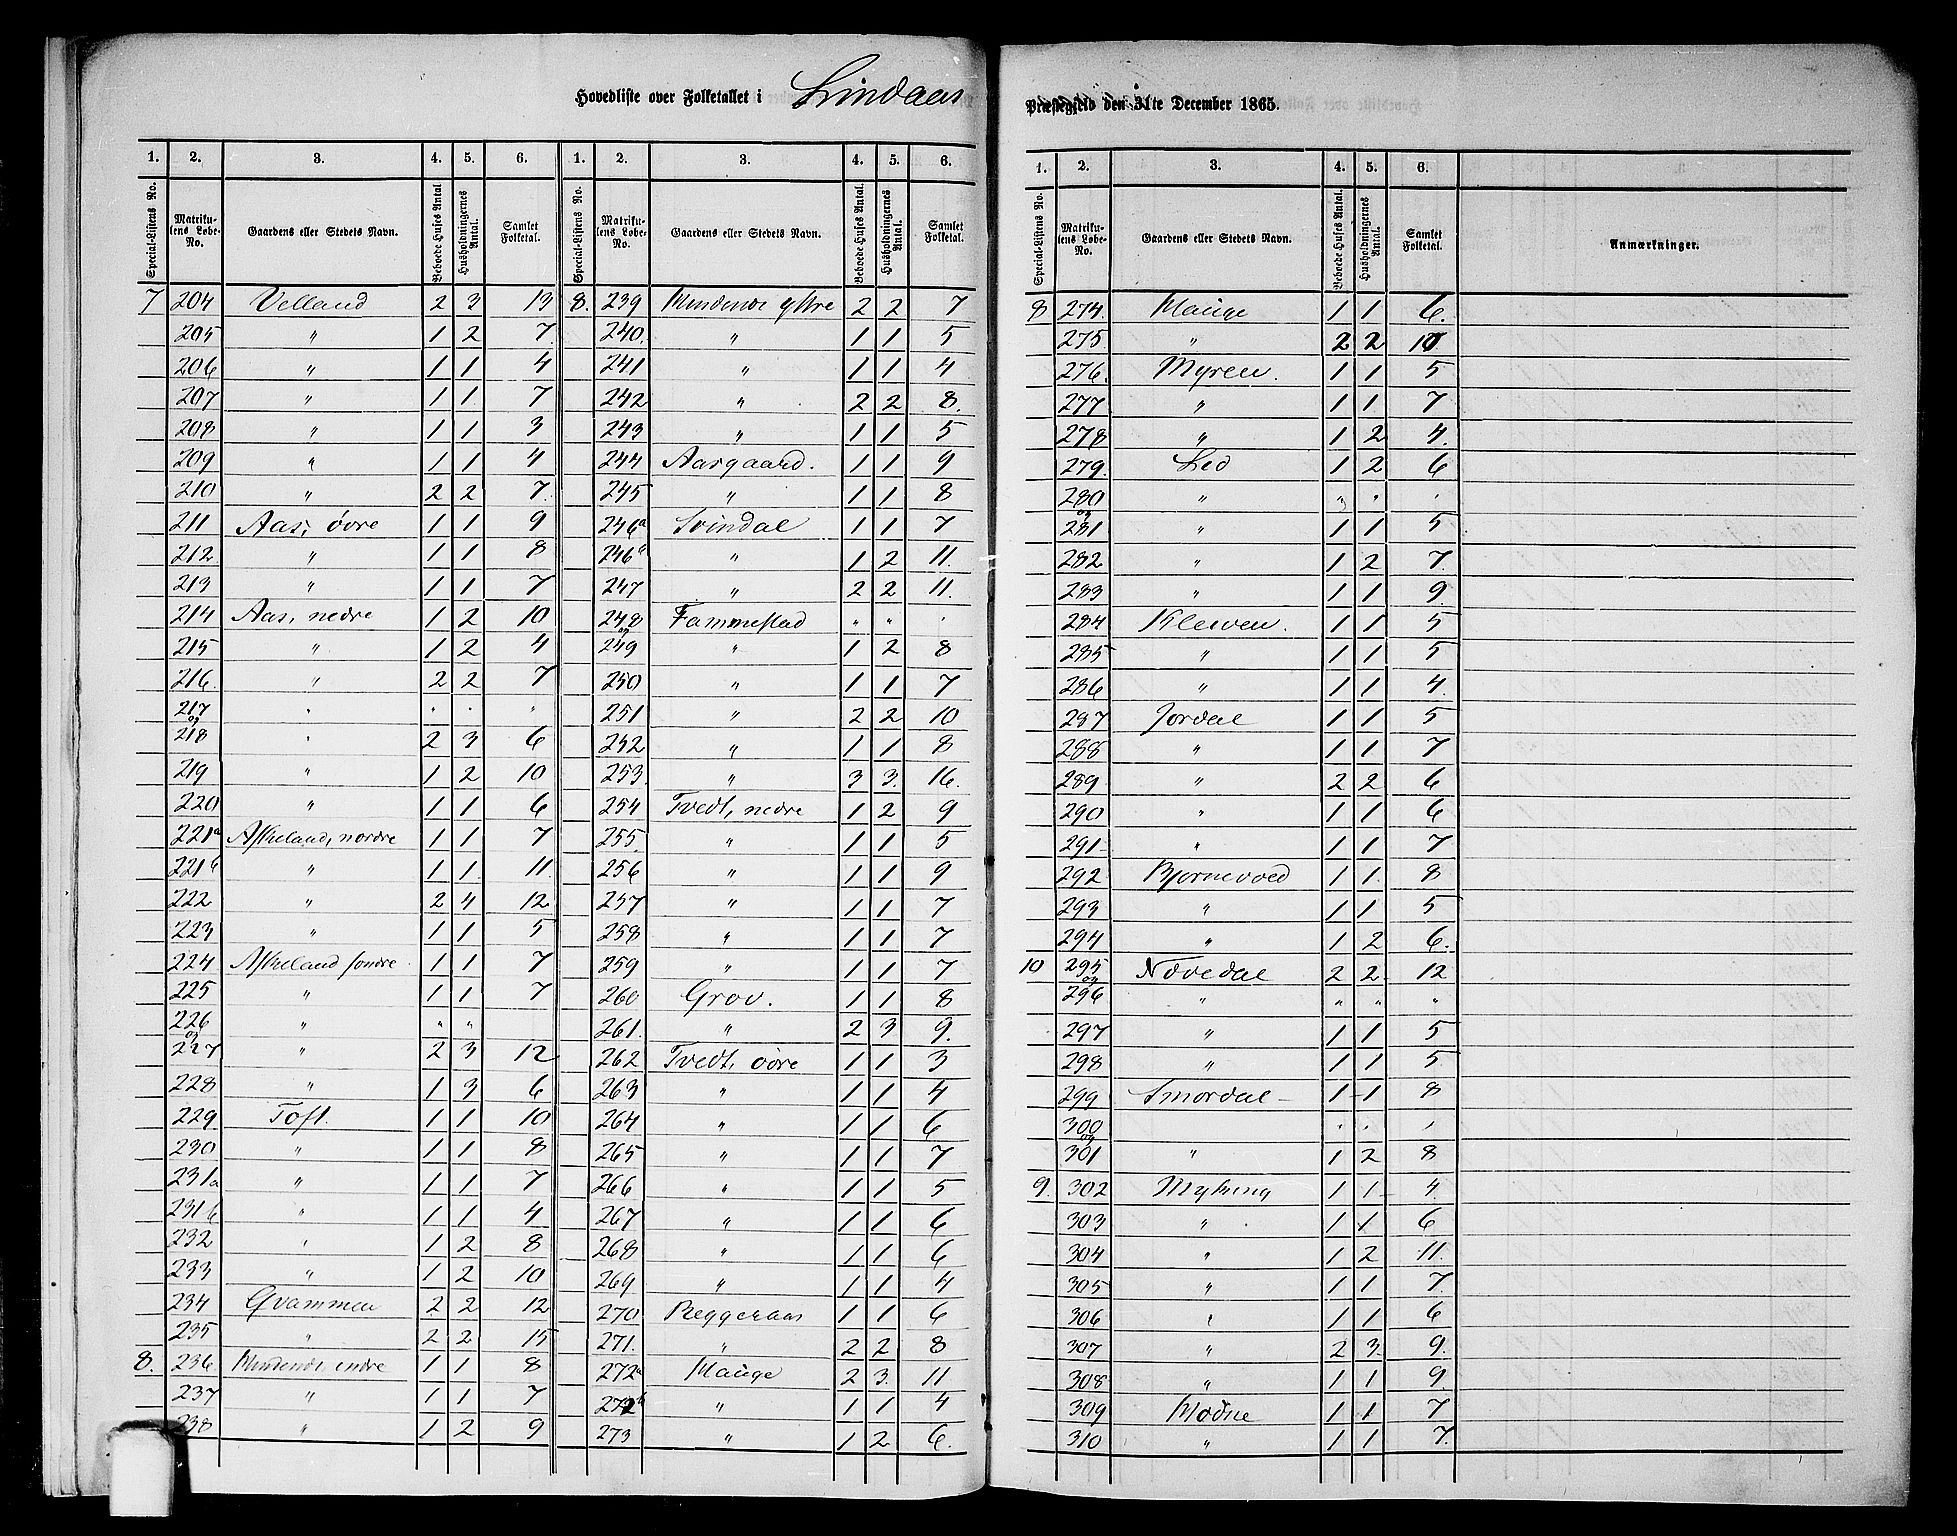 Hovedliste over Folketallet i Lindaas Præstegjeld den 31te December 1865.
1. 2. 3. 4. 5. 6. 1. 2. 3. 4. 5. 6.
Special-Listens No. Matrikulens Løbe-No. Gaardens eller Stedets Navn. Beboede Huses Antal Husholdningernes Antal. Samlet Folketal. Special-Listens No. Matrikulens Løbe-No. Gaardens eller Stedets Navn. Beboede Huses Antal. Husholdningernes Antal. Samlet Folketal.
7 204 Velland 2 3 13 8. 239 Mundende ÿttre 2 2 7
205 " 1 2 7 240. " 1 1 5
206 " 1 1 4 241 " 1 1 4
207 " 1 1 7 242 " 2 2 8.
208 " 1 1 3 243 " 1 1 5
209 " 1 1 4 244 Aasgaard. 1 1 9
210 " 2 2 7 245 " 1 1 8
211 Aas, övre 1 1 9 246a Svindal 1 1 7
212 " 1 1 8 246b " 1 2 11.
213 " 1 1 7 247 " 2 2 11.
214 Aas, nedre 1 2 10 248 og Fammestad " " "
215 " 1 2 4 249 " 1 2 8
216. " 2 2 7 250 " 1 1 7
217 og " " " " 251 " 2 2 10
218 " 2 3 6 252 " 1 1 8
219 " 1 2 10 253. " 3 3. 16.
220 " 1 1 6 254 Tvedt, nedre 1 2 9
221a Askeland, nordre 1 1 7 255. " 1 1 5
221b " 1 1 11. 256 " 1 1 9
222 " 2 4 12 257 " 1 1 7
223 " 1 1 5 258 " 1 1 7
224 Askeland söndre 1 1 7 259 " 1 1 7
225 " 1 1 7 260 Grov. 1 1 8
226 og " " " 261. " 2 3 9.
227 " 2 3 12 262 Tvedt, övre 1 1 3
228 " 1 3 6 263 " 1 1 4
229 Toft. 1 1 10 264 " 1 1 6
230 " 1 1 8 265 " 1 1 7
231a " 1 1 7 266 " 1 1 5
231b " 1 1 4 267 " 1 1 6
232 " 1 2 8 268 " 1 1 6
233 " 1 2 10 269 " 1 1 4
234 Qvammen 2 2 12 270 Reggeraas 1 1 6
235 " 2 2 15 271. " 2 2 8
8. 236. Mundende, indre 1 1 8 272a Mauge 2 3. 11
237 " 1 1 7 272b " 1 1 4
238 " 1 2 9 273 " 1 2 6.
1. 2. 3. 4. 5. 6.
Special-Listens No. Matrikulens Løbe-No. Gaardens eller Stedets Navn. Beboede Huses Antal. Husholdningernes Antal. Samlet Folketal. Anmærkninger.
8 274. Mauge 1 1 6.
275 " 2 2 10
276. Myren. 1 1 5
277 " 1 1 7
278 " 1 2 4.
279. Lid 1 2 6
280 og " " "
281 " 1 1 5
282 " 1 2 7.
283 " 1 1 9.
284 Kleiven. 1 1 5
285 " 1 1 5
286 " 1 1 4.
287 Jordal 1 1 5
288 " 1 1 7
289 " 2 2 6
290 " 1 1 6
291 " 1 1 7
292 Bjørnevoed 1 1 8
293 " 1 1 5
294 " 1 2 6.
10 295 og Novedal 2 2 12
296 " " " "
297 " 1 1 5
298 " 1 1 5
299 Smørdal 1 1 8
300 og " " "
301 " 1 2 8
9. 302 Myking 1 1 4.
303 " 1 1 6
304 " 1 2 11.
305 " 1 1 7.
306 " 1 1 6
307 " 2 3. 9.
308 " 1 1 9.
309 Modne 1 1 7
310 " 1 1 7.